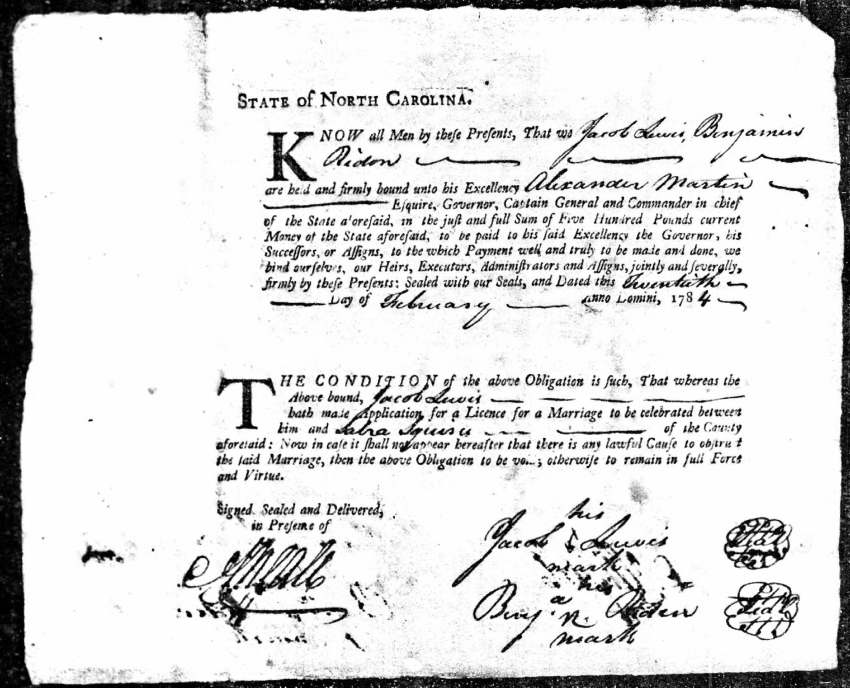 STATE of NORTH CAROLINA.
KNOW all Men by these Presents, That we Jacob Lewis, Benjamin
Ridon
are held and firmly bound unto his Excellency Alexander Martin
Esquire, Governor, Captain General and Commander in chief
of the State aforesaid, in the just and full Sum of Five Hundred Pounds current
Money of the State aforesaid, to be paid to his said Excellency the Governor, his
Successors, or Assigns, to the which Payment well and truly to be made and done, we
bind ourselves, our Heirs, Executors, Administrators and Assigns, jointly and severally,
firmly by these Presents: Sealed with our Seals, and Dated this Twentieth
Day of February Anno Domini, 1784
THE CONDITION of the above Obligation is such, That whereas the
Above bound, Jacob Lewis
hath made Application for a Licence for a Marriage to be celebrated between
him and Sabra Squires of the County
aforesaid: Now in case it shall not appear hereafter that there is any lawful Cause to obstruct
the said Marriage, then the above Obligation to be void; otherwise to remain in full Force
and Virtue.
Signed Sealed and Delivered,
in Presence of
his
Jacob Lewis
mark
his
Benj. R. Riden
mark
Seal
Seal